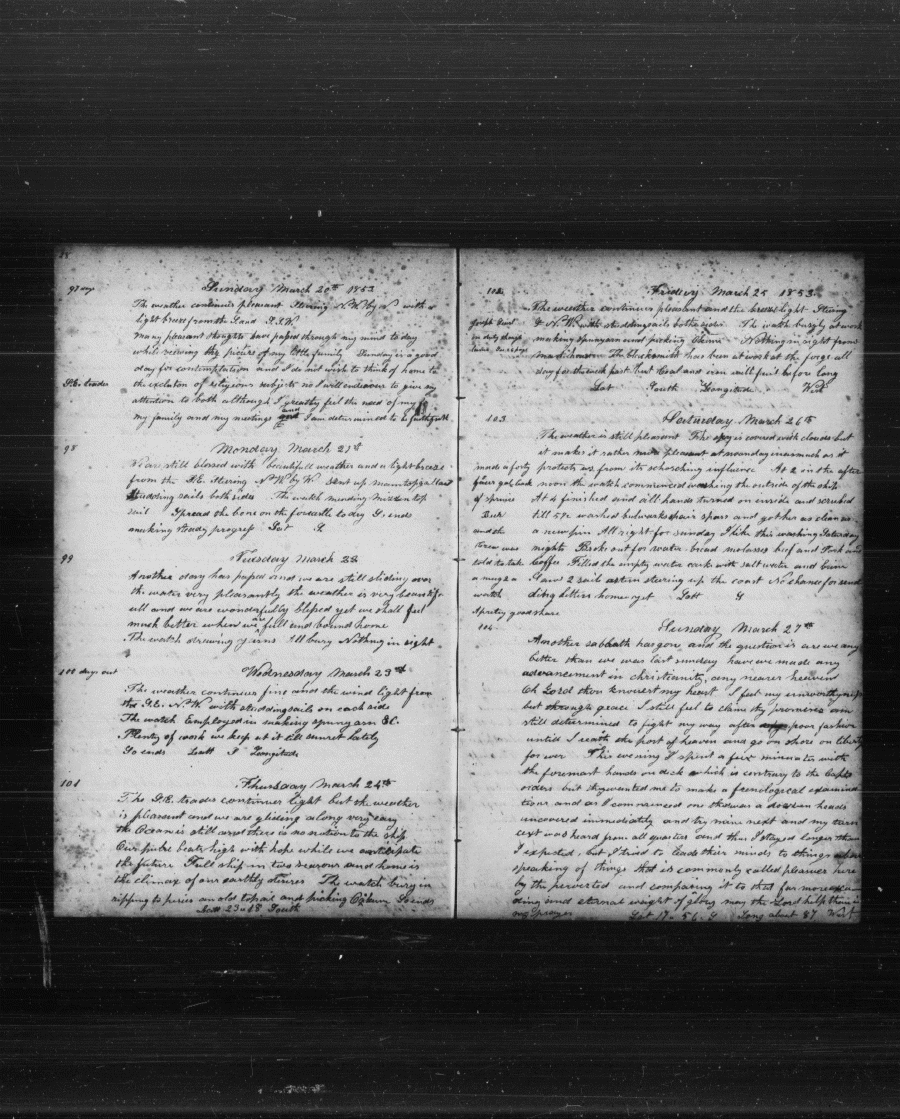 97 day
Sunday March 20th 1853
The weather continues pleasant Stering N.W. by N with a
light breeze from the Land S.S.W.
Many pleasant thoughts have passed through my mind to day
while viewing the picture of my little family Sunday is a good
day for contemplation and I do not wish to think of home to
S.E. trades
the exclution of religious subjects so I will endeavor to give my
attention to both although I greatly feel the need of my
my family and my meetings and I am determined to be faithfull
98
Monday March 21st
We are still blessed with beautifull weather and a light breeze
from the S.E. Stering N.W. by W. Sent up main topgallant
Studding sails both sides The watch mending mizzen top
sail Spread the bone on the forecastle to dry So ends
making steady progress Lat S.
99
Tuesday March 22
Another day has passed and we are still sliding over
the water very pleasantly the weather is very beautifu
ull and we are wonderfully blessed yet we shall feel
much better when we are full and bound home
The watch drawing yarns All busy Nothing in sight
100 days out
Wednesday March 23rd
The weather continues fine and the wind light from
the S.E. N.W. with studding sails on each side
The watch Employed in making spunyarn &C.
Plenty of work we keep at it till sunset lately
So ends Latt S Longitude
101
Thursday March 24th
The S.E. trades continues light but the weather
is pleasent and we are gliding along very easy
the Ocean is still and there is no motion to the ship
Our pulse beats high with hope while we anticipate
the future Full ship in two seasons and home is
the climax of our earthly desires The watch busy in
ripping to pieces an old topsail and picking Oakum So ends
Latt 23 - 18 South
102
Friday March 25 1853
The weather continues pleasant and the breeze light Stering
N.W. with studding sails both sides The watch busyly at work
making spunyarn and picking Okum Nothing in sight from
mast heads The blacksmith has been at work at the forge all
day for the week past but Coal and iron will fail before long
Latt South Longitude West
103
Saturday March 26th
The weather is still pleasant The sky is covered with clouds but
it makes it rather more pleasant at noonday inasmuch as it
made a forty
protects us from its schorching influence At 2 in the after
noon the watch commenced washing the outside of the ship
of spruce
At 4 finished and all hands turned on inside and scrubed
Beer
till 5½ washed bulwarks spair spars and got her as clean as
and the
a new pin All right for sunday I like this washing Saturday
crew was
nights Broke out for water bread molasses beef and Pork and
told to take
Coffee Filled the empty water cask with salt water and
a mug a
Saw 2 sail astern stering up the coast No chance for send
watch
ding letters home yet Latt S
A pretty good share
104
Sunday March 27th
Another sabbath has gone and the question is are we any
better than we was last sunday have we made any
advancement in christianity, any nearer heaven
Oh Lord thou knowest my heart I feel my unworthyness
but through grace I still feel to claim thy promises am
still determined to fight my way after poor fashion
untill I reach the port of heaven and go on shore on liberty
for ever This evening I spent a few minutes with
the foremast hands on deck which is contrary to the Capts
orders but they wanted me to make a frenological examina
tions and as I commenced on the a dozen heads
uncovered immediately and try mine next and my turn
next was heard from all quarters and thus I stayed longer than
I expected, but I tried to leade their minds to things above
speaking of things that is commonly called pleasure here
by the perverted and comparing it to that far more
ding and eternal weight of glory may the Lord help them is
my prayer Lat 17 - 56 S Long about 87 West